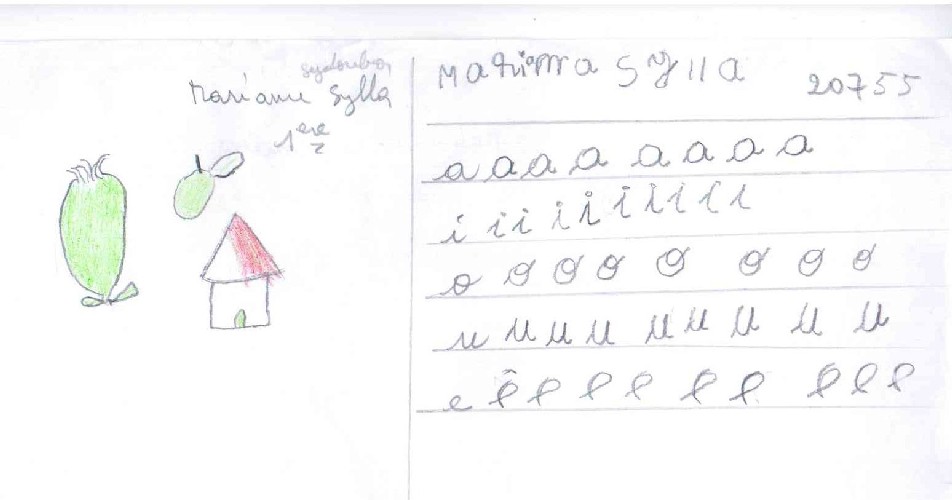 Mariame Sylla
1ere
Mariama Sylla 20755
a a a a a a a a
i i i i i i i i i
o o o o o o o o
u u u u u u u u u
e e e e e e e e e e